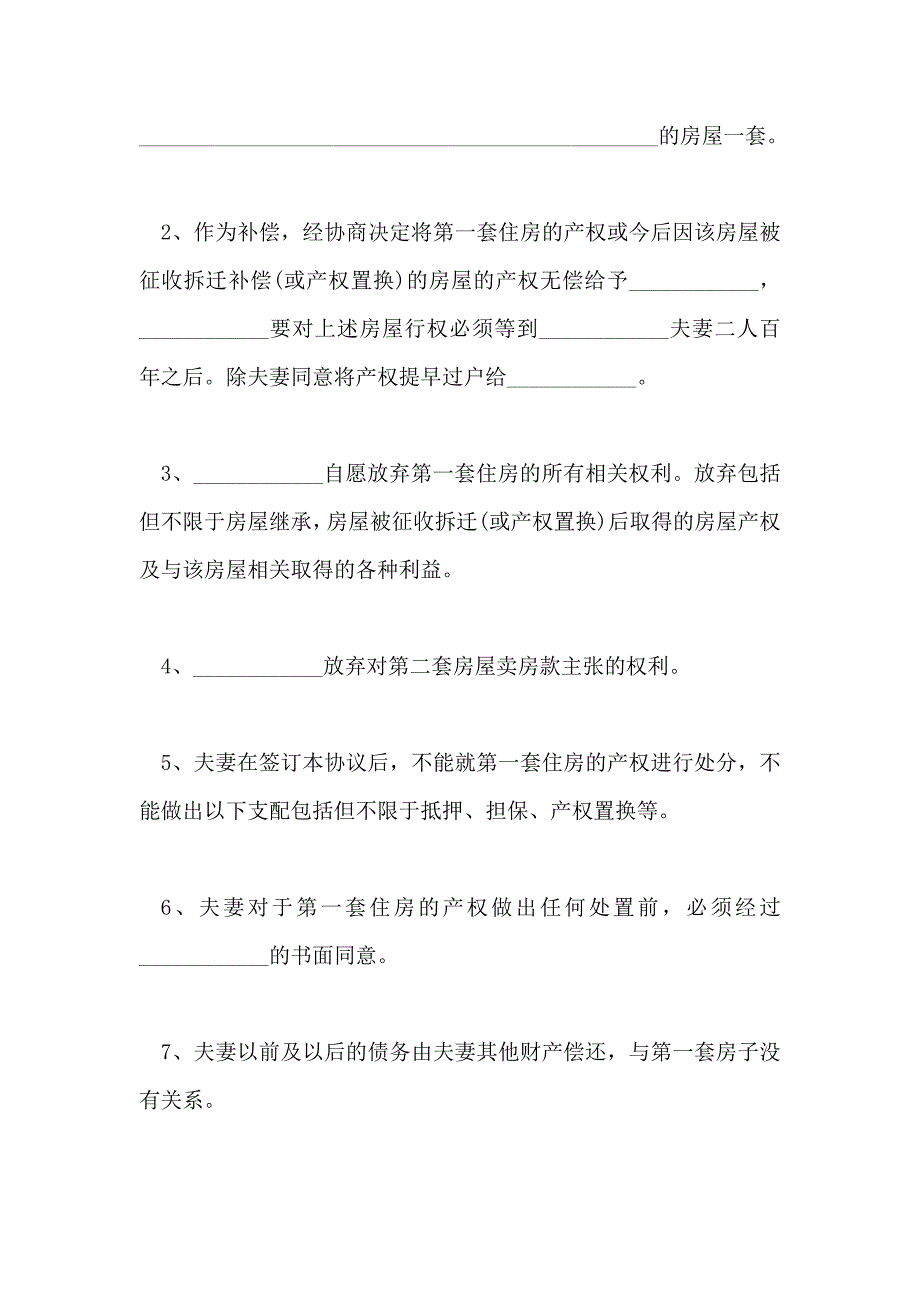 ________________________________________________的房屋一套。
2、作为补偿，经协商决定将第一套住房的产权或今后因该房屋被
征收拆迁补偿(或产权置换)的房屋的产权无偿给予____________，
____________要对上述房屋行权必须等到____________夫妻二人百
年之后。除夫妻同意将产权提早过户给____________。
3、____________自愿放弃第一套住房的所有相关权利。放弃包括
但不限于房屋继承,房屋被征收拆迁(或产权置换)后取得的房屋产权
及与该房屋相关取得的各种利益。
4、____________放弃对第二套房屋卖房款主张的权利。
5、夫妻在签订本协议后，不能就第一套住房的产权进行处分，不
能做出以下支配包括但不限于抵押、担保、产权置换等。
6、夫妻对于第一套住房的产权做出任何处置前，必须经过
____________的书面同意。
7、夫妻以前及以后的债务由夫妻其他财产偿还，与第一套房子没
有关系。